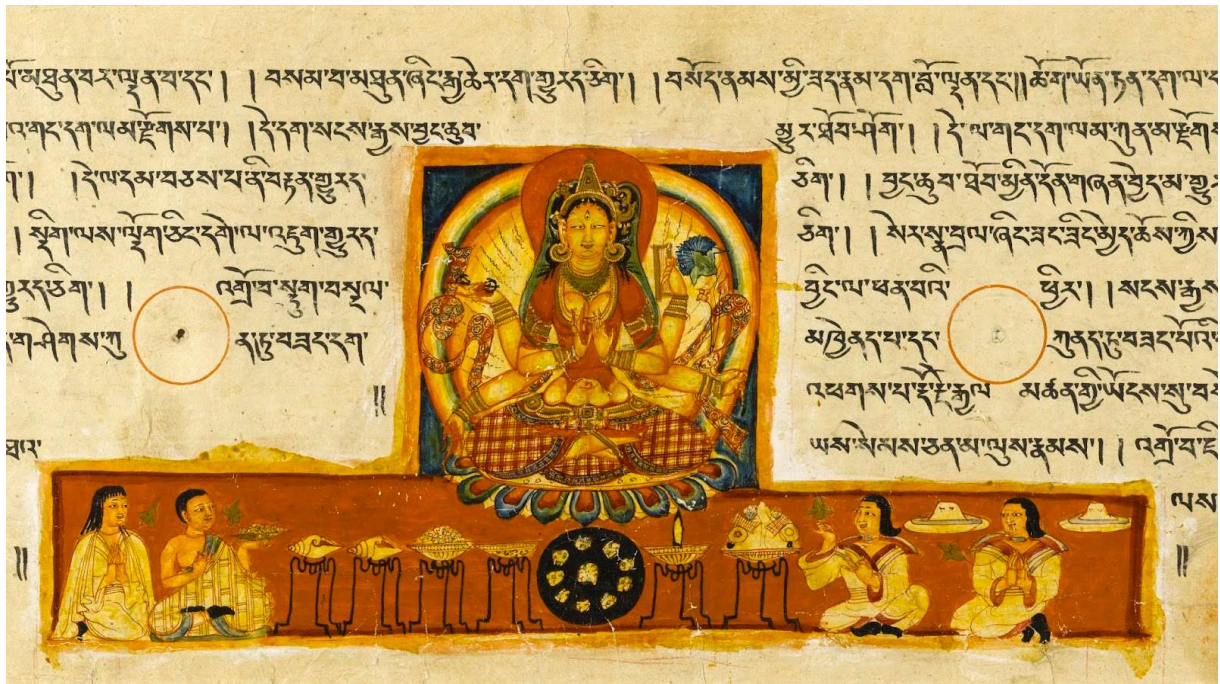 མཐུན་བར་ལྡན་བ་དང་། །བསམ་བ་མཐུན་ཞིང་རྒྱ་ཆེར་དག་གྱུརད་ཅིག། །བསོད་ནམས་མྱི་ཟད་རྣམ་དག་བློ་ལྡན་དང་།།ཚོག་ཡོན་ཏན་དག་ལ་
གང་དག་ལམ་རྫོགས་པ། །དེ་དག་སངས་རྒྱས་བྱང་ཆུབ་ མྱུར་ཐོབ་ཤོག། །དེ་ལ་གང་དག་ལམ་ཀུན་མ་རྫོགས
།དེ་ལ་དམ་བཅས་པ་ནི་བརྟན་གྱུརད་ ཅིག། །བྱང་ཆུབ་ཐོབ་མྱིན་དོན་གཞན་བྱེད་མ་གྱུར
།སྡིག་ལས་ལྡོག་ཅིང་དགེ་ལ་འཇུག་གྱུརད་ ཅིག། །སེར་སྣ་བྲལ་ཞིང་ཟང་ཟིང་མྱེད་ཆོས་ཀྱིས
གྱུརད་ཅིག། །འགྲོ་བ་སྡུག་བསྔལ་ བྱིང་ལ་ཕན་བའི་ ཕྱིར། །སངས་རྒྱས
ག་ཤེགས་ཀུན་ཏུ་བཟང་དག་ མཁྱེནད་པ་དང་ ཀུནད་ཏུ་བཟང་པོའི་
།། འཕགས་པ་རྡོ་རྗེ་རྒྱལ མཚན་གྱི་ཡོངས་སུ་
ཐའ་ ཡས་སེམས་ཅན་མ་ལུས་རྣམས། །འགྲོ་བ་ཇི
ལས
།། །།